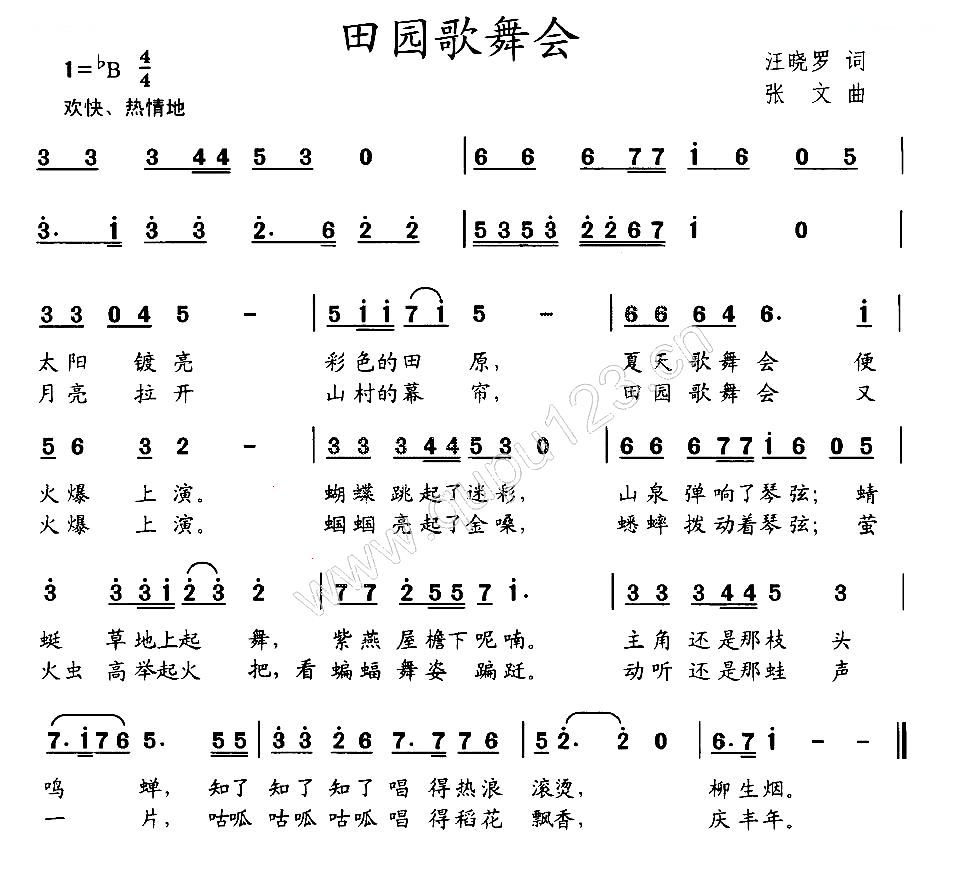 田园歌舞会
1=♭B 4/4
汪晓罗 词
欢快、热情地
张 文 曲
3 3 3 4 4 5 3 0 | 6 6 6 7 7 i 6 0 5 |
3. i 3 3 2. 6 2 2 | 5 3 5 3 2 2 6 7 i 0 |
3 3 0 4 5 - | 5 i i 7 i 5 - | 6 6 6 4 6. i |
太阳 镀亮 彩色的田 原， 夏天歌舞会 便
月亮 拉开 山村的幕 帘， 田园歌舞会 又
5 6 3 2 - | 3 3 3 4 4 5 3 0 | 6 6 6 7 7 i 6 0 5 |
火爆 上演。 蝴蝶 跳起了迷彩， 山泉 弹响了琴弦；蜻
火爆 上演。 蝈蝈 亮起了金嗓， 蟋蟀 拨动着琴弦；萤
3 3 3 i 2 3 2 | 7 7 2 5 5 7 i. | 3 3 3 4 4 5 3 |
蜓 草地上起 舞， 紫燕 屋檐下呢喃。 主角 还是那枝 头
火虫 高举起火 把，看 蝙蝠 舞姿 蹁跹。 动听 还是那蛙 声
7. i 7 6 5. 5 5 | 3 3 2 6 7. 7 7 6 | 5 2. 2 0 | 6. 7 i - - ‖
鸣 蝉，知了 知了 知了 唱 得热浪 滚烫， 柳生烟。
一 片，咕呱 咕呱 咕呱 唱 得稻花 飘香， 庆丰年。
www.qupu123.cn